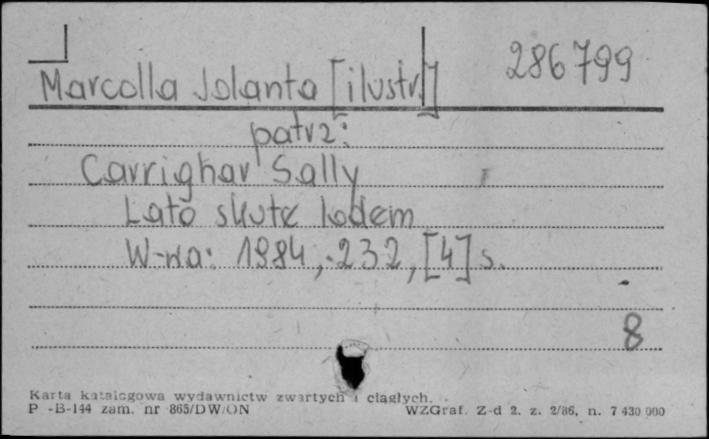 286799
Marcolla Jolanta [ilustr.]
patrz:
Carrighar Sally
Lato skute lodem
W-wa: 1984, 232, [4] s.
8
Karta katalogowa wydawnictw zwartych i ciągłych.
P -B-144 zam. nr 865/DW/ON
WZGraf. Z-d 2. z. 2/86, n. 7 430 000